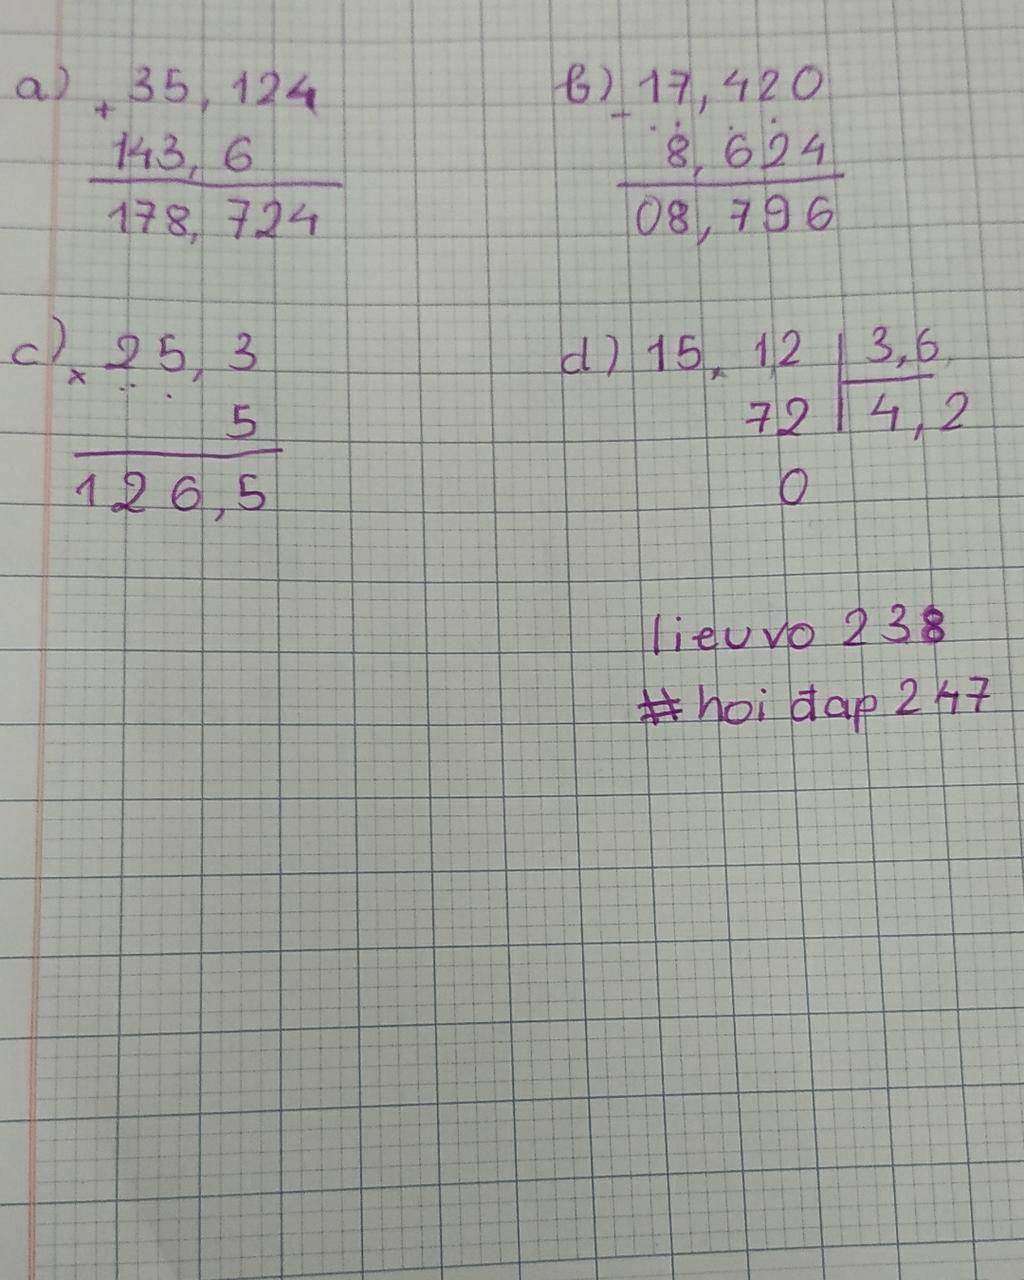 a) + 35,124
143,6
178,724
b) - 17,420
8,624
08,796
c) x 25,3
5
126,5
d) 15,12 | 3,6
72 | 4,2
0
lieuvo 238
# hoi đap 247